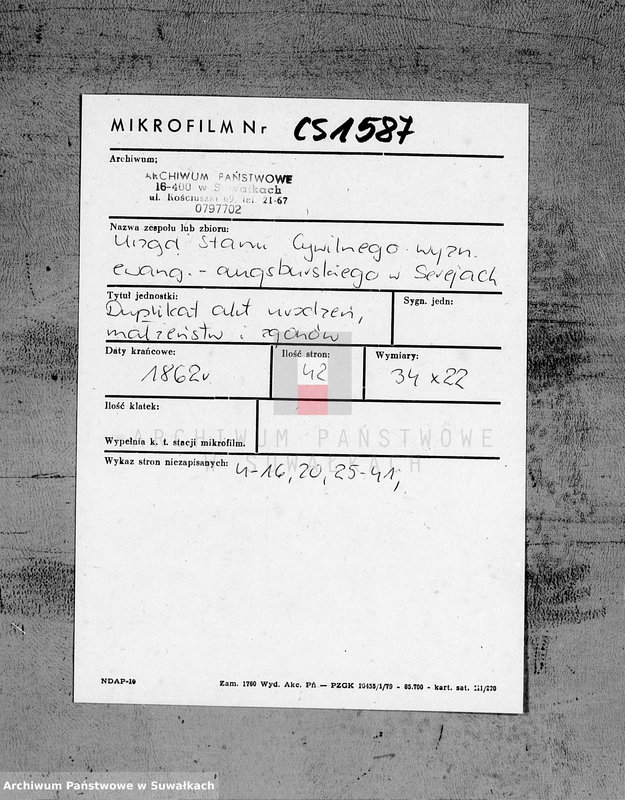 MIKROFILM Nr CS1587
Archiwum;
ARCHIWUM PAŃSTWOWE
16-400 w Suwałkach
ul. Kościuszki 69, tel. 21-67
0797702
Nazwa zespołu lub zbioru:
Urząd Stanu Cywilnego wyzn.
ewang.-augsburskiego w Serejach
Tytuł jednostki:
Duplikat akt urodzeń,
małżeństw i zgonów
Sygn. jedn:
Daty krańcowe:
1862r.
Ilość stron:
42
Wymiary:
34 x 22
Ilość klatek:
Wypełnia k. t. stacji mikrofilm.
ARCHIWUM PAŃSTWOWE
W SUWAŁKACH
Wykaz stron niezapisanych: 4-16, 20, 25-41,
NDAP-10
Zam. 1760 Wyd. Akc. Pń — PZGK 10455/I/79 - 85.700 - kart. sat. III/220
Archiwum Państwowe w Suwałkach